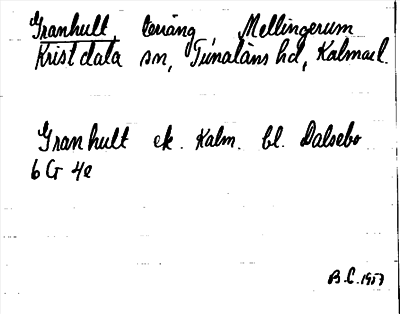 Granhult, terräng, Mellingerum
Kristdala sn, Tunaläns hd, Kalmar l.
Granhult ek. Kalm. bl. Dalsebo
6 G 4e
B.C. 1957